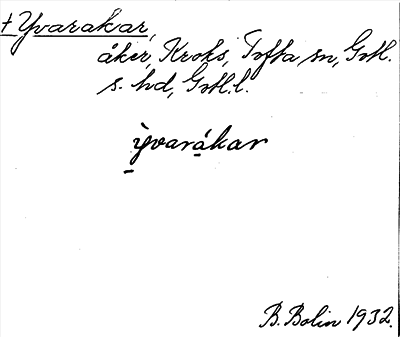 † Yvarakar,
åker, Kroks, Tofta sn, Gotl.
s. hd, Gotl. l.
ỳvarákar
B. Bolin 1932.